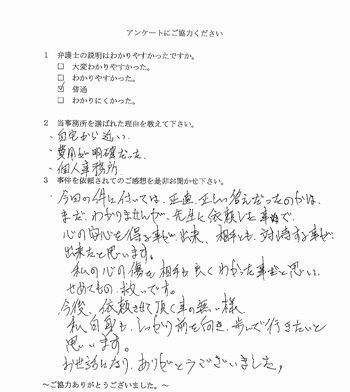 アンケートにご協力ください
1 弁護士の説明はわかりやすかったですか。
□ 大変わかりやすかった。
□ わかりやすかった。
☑ 普通
□ わかりにくかった。
2 当事務所を選ばれた理由を教えて下さい。
・自宅から近い
・費用が明確だった
・個人事務所
3 事件を依頼されてのご感想を是非お聞かせ下さい。
・今回の件に付いては、正直、正しい答えだったのかは、
まだ、わかりませんが、先生に依頼した事で、
心の安心を得る事が出来、相手とも、対峙する事が
出来たと思います。
私の心の傷を相手も良くわかった事だと思い、
せめてもの救いです。
今後、依頼させて頂く事の無い様、
私自身も、しっかり前を向き、歩んで行きたいと
思います。
お世話になり、ありがとうございました。
～ご協力ありがとうございました。～